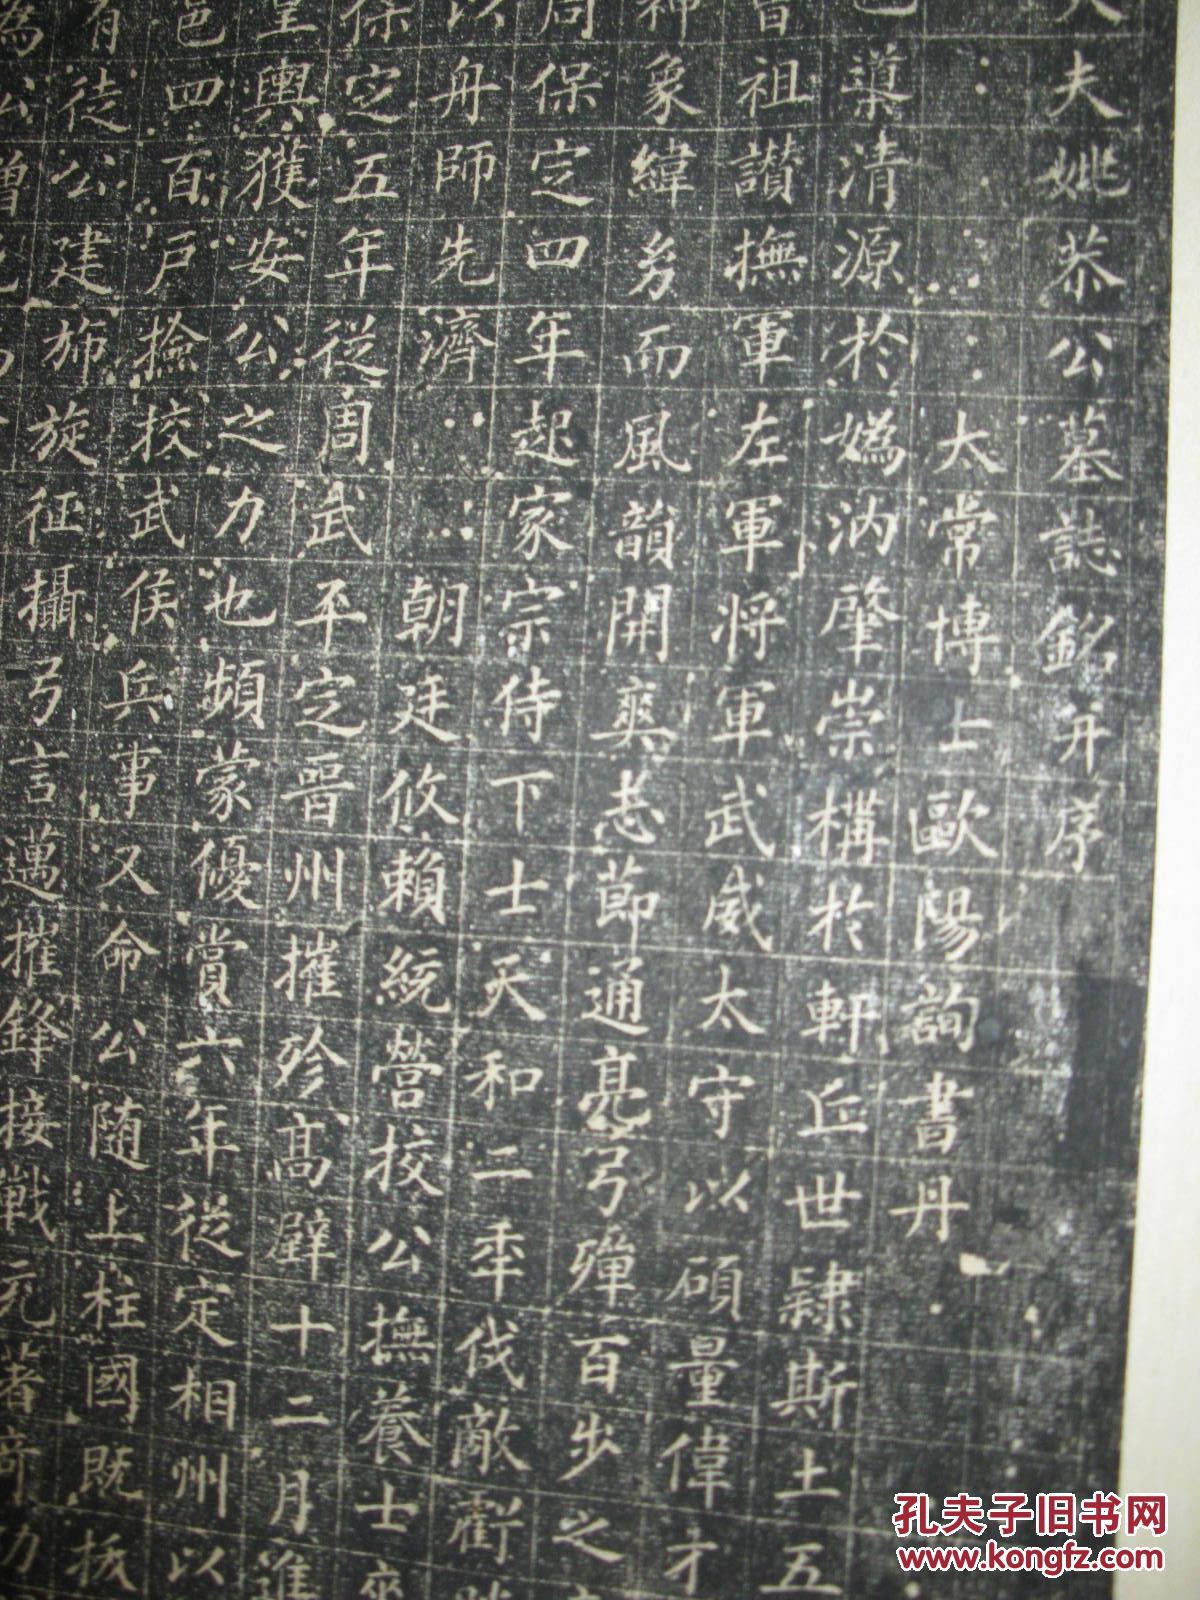 夫姚恭公墓誌銘并序
太常博士歐陽詢書丹
導清源於嬀汭肇崇構於軒丘世隸斯土五
祖讃撫軍左軍將軍武威太守以碩量偉才
象緯多而風韻開爽志節通亮弓殫百步之
周保定四年起家宗侍下士天和二年伐敵齗
以舟師先濟朝廷攸賴統營校公撫養士卒
保定五年從周武平定晉州摧殄髙壁十二月進
皇輿獲安公之力也頻蒙優賞六年從定相州以
邑四百戶撿挍武侯兵事又命公随上柱國既拔
有徒公建斾旋征攝弓言邁摧鋒接戰元著奇
為公
孔夫子旧书网
www.kongfz.com